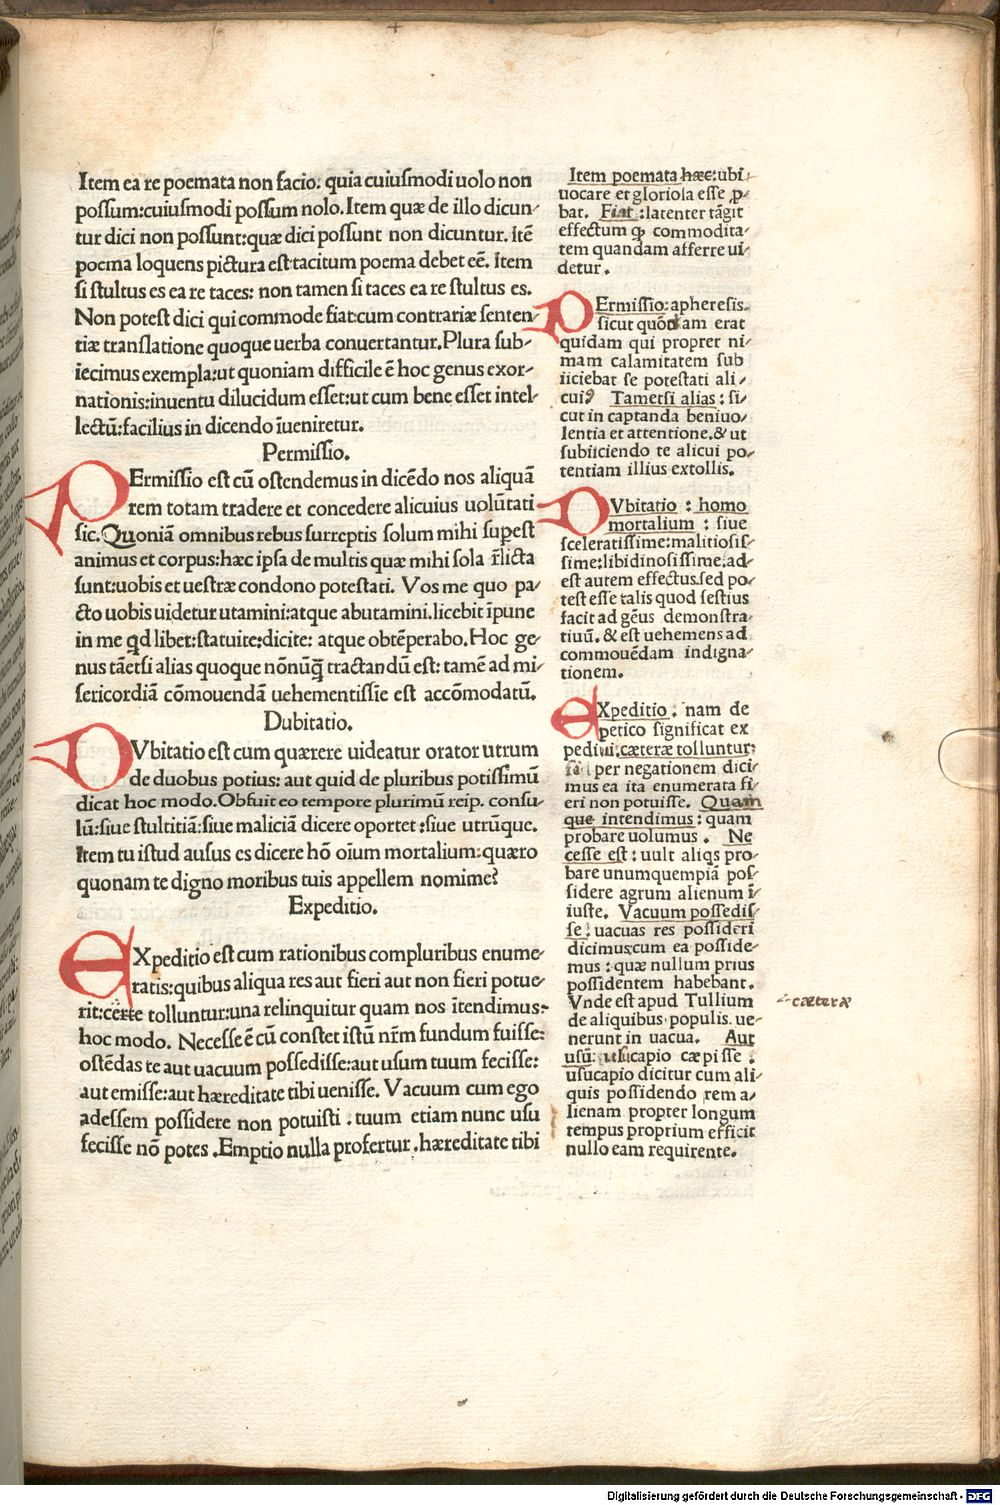 Item ea re poemata non facio: quia cuiusmodi uolo non
possum:cuiusmodi possum nolo.Item quæ de illo dicun-
tur dici non possunt:quæ dici possunt non dicuntur. Itē
poema loquens pictura est:tacitum poema debet eē. Item
si stultus es ea re taces: non tamen si taces ea re stultus es.
Non potest dici qui commode fiat:cum contrariæ senten-
tiæ translatione quoque uerba conuertantur.Plura sub-
iecimus exempla:ut quoniam difficile ē hoc genus exor-
nationis:inuentu dilucidum esset:ut cum bene esset intel-
lectū:facilius in dicendo īueniretur.
Permissio.
PErmissio est cū ostendemus in dicēdo nos aliquā
rem totam tradere et concedere alicuius uolūtati
sic.Quoniā omnibus rebus surreptis solum mihi supest
animus et corpus:hæc ipsa de multis quæ mihi sola r̄licta
sunt:uobis et uestræ condono potestati. Vos me quo pa-
cto uobis uidetur utamini:atque abutamini.licebit īpune
in me qd libet:statuite:dicite: atque obtēperabo.Hoc ge-
nus tāetsi alias quoque nōnūq̄ tractandū est: tamē ad mi-
sericordiā cōmouendā uehementissīe est accōmodatū.
Dubitatio.
DVbitatio est cum quærere uideatur orator utrum
de duobus potius: aut quid de pluribus potissimū
dicat hoc modo.Obfuit eo tempore plurimū reip. consu-
lū:siue stultitiā:siue maliciā dicere oportet:siue utrūque.
Item tu istud ausus es dicere hō oīum mortalium:quæro
quonam te digno moribus tuis appellem nomime?
Expeditio.
EXpeditio est cum rationibus compluribus enume-
ratis:quibus aliqua res aut fieri aut non fieri potue-
rit:certe tolluntur:una relinquitur quam nos ītendimus:
hoc modo. Necesse ē cū constet istū nr̄m fundum fuisse:
ostēdas te aut uacuum possedisse:aut usum tuum fecisse:
aut emisse:aut hæreditate tibi uenisse. Vacuum cum ego
adessem possidere non potuisti . tuum etiam nunc usu
fecisse nō potes .Emptio nulla profertur .hæreditate tibi
Item poemata hæc:ubi
uocare et gloriola esse p-
bat. Fiat :latenter tāgit
effectum qp commodita-
tem quandam afferre ui-
detur.
PErmissio:apheresis.
sicut quōdam erat
quidam qui propter ni-
mam calamitatem sub
iiciebat se potestati ali-
cui? Tametsi alias : si-
cut in captanda beniuo-
lentia et attentione.& ut
subiiciendo te alicui po-
tentiam illius extollis.
DVbitatio : homo
mortalium : siue
sceleratissime:malitiosis-
sime:libidinosissime.ad-
est autem effectus.sed po-
test esse talis quod sestius
facit ad gēus demonstra-
tiuū. & est uehemens ad
commouēdam indigna-
tionem.
EXpeditio : nam de
petico significat ex
pediui:cæteræ tolluntur:
per negationem dici-
mus ea ita enumerata fi-
eri non potuisse. Quam
que intendimus : quam
probare uolumus . Ne
cesse est : uult aliqs pro-
bare unumquempiā pos-
sidere agrum alienum ī-
iuste. Vacuum possedis
se: uacuas res possideri
dicimus:cum ea posside-
mus : quæ nullum prius
possidentem habebant.
Vnde est apud Tullium
de aliquibus populis. ue-
nerunt in uacua. Aut
usū: usucapio cæpisse :
usucapio dicitur cum ali-
quis possidendo rem a-
lienam propter longum
tempus proprium efficit
nullo eam requirente.
cæteræ
Digitalisierung gefördert durch die Deutsche Forschungsgemeinschaft - DFG